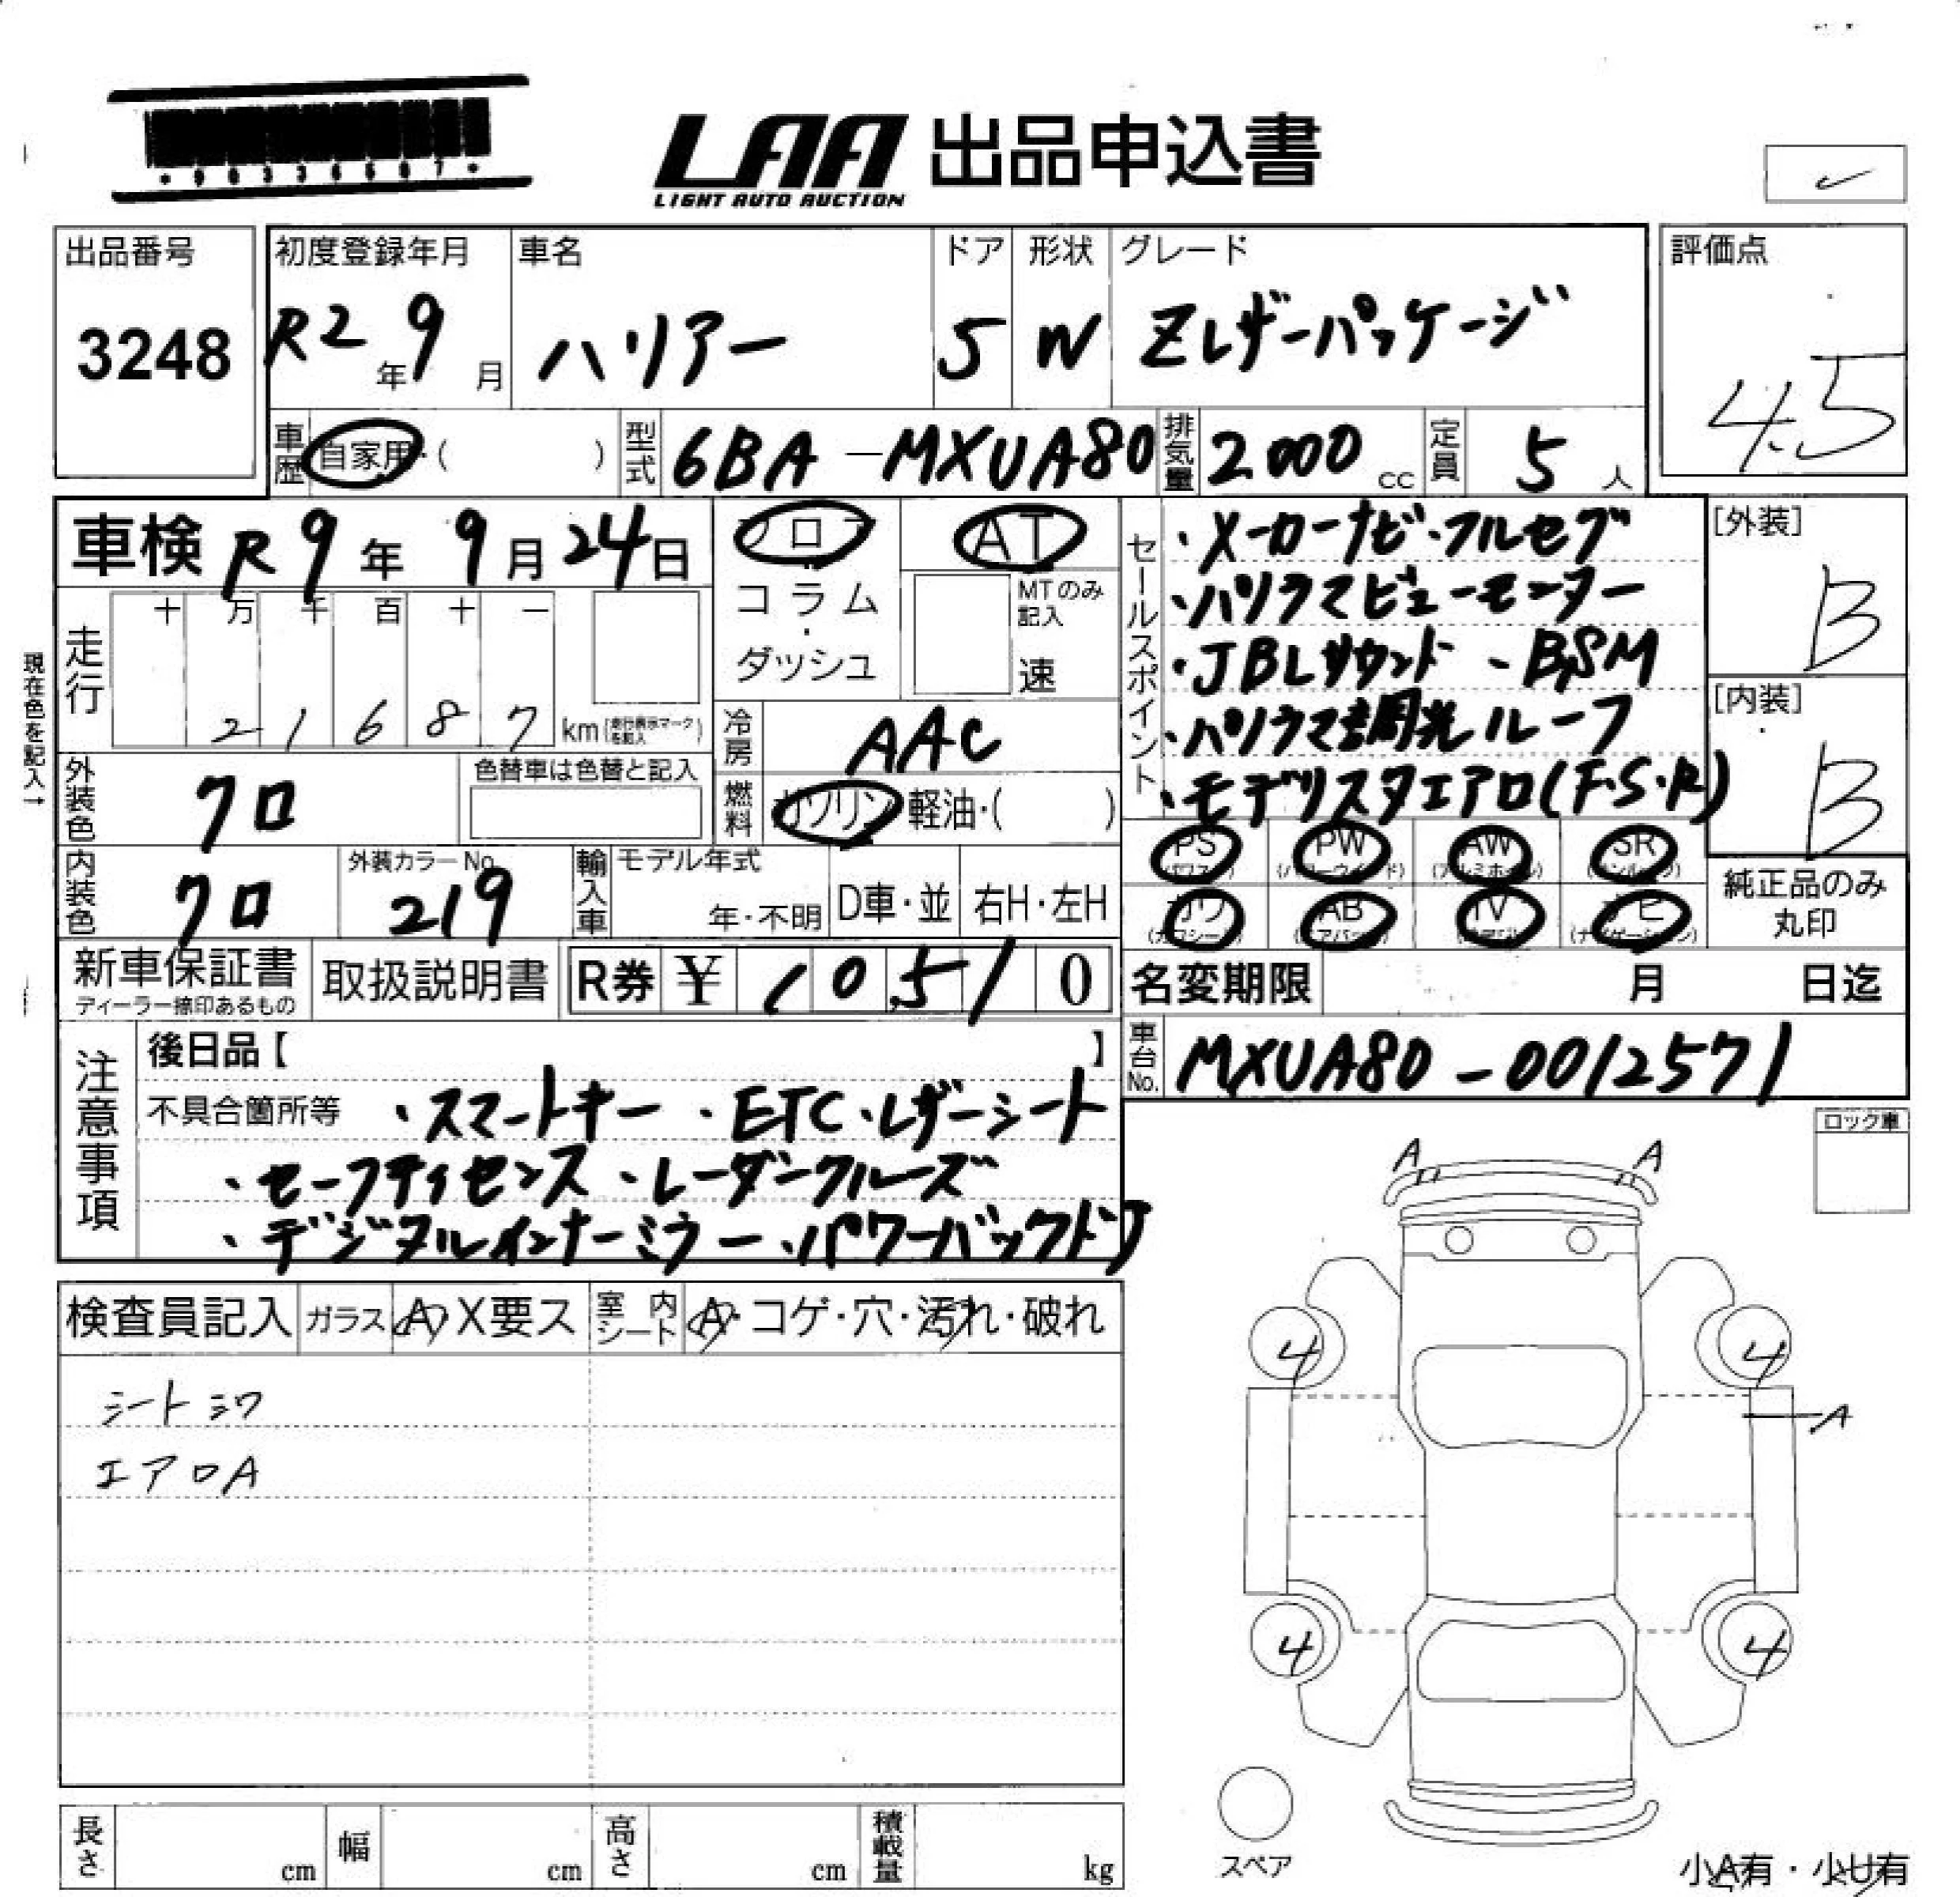 LAA 出品申込書
LIGHT AUTO AUCTION
出品番号
3248
初度登録年月
R2年9月
車名
ハリアー
ドア
5
形状
W
グレード
Zレザーパッケージ
評価点
4.5
車歴 自家用・( )
型式 6BA-MXUA80
排気量 2000 cc
定員 5 人
車検 R9年9月24日
フロア
コラム
・
ダッシュ
AT
MTのみ記入
速
走行
十 万 千 百 十 一
2 1 6 8 7 km(走行表示マークを記入)
現在色を記入→
外装色 クロ
色替車は色替と記入
冷房 AAC
燃料 ガソリン・軽油・( )
内装色 クロ
外装カラーNo.
219
輸入車 モデル年式
年・不明
D車・並
右H・左H
新車保証書
ディーラー捺印あるもの
取扱説明書
R券 ¥ 10510
セールスポイント
・メーカーナビ・フルセグ
・パノラマビューモニター
・JBLサウンド ・BSM
・パノラマ調光ルーフ
・モデリスタエアロ(F・S・R)
[外装]
B
[内装]
B
PS (パワステ)
PW (パワーウインド)
AW (アルミホイル)
SR (サンルーフ)
カワ (カワシート)
AB (エアバック)
TV (テレビ)
ナビ (ナビゲーション)
純正品のみ
丸印
名変期限 月 日迄
車台No. MXUA80-0012571
注意事項
後日品【 】
不具合箇所等 ・スマートキー ・ETC・レザーシート
・セーフティセンス ・レーダークルーズ
・デジタルインナーミラー ・パワーバックドア
ロック車
検査員記入
ガラス A X要ス
室内シート A・コゲ・穴・汚れ・破れ
シートシワ
エアロA
A A
4 4
A
4 4
スペア
長さ cm
幅 cm
高さ cm
積載量 kg
小A有・小U有